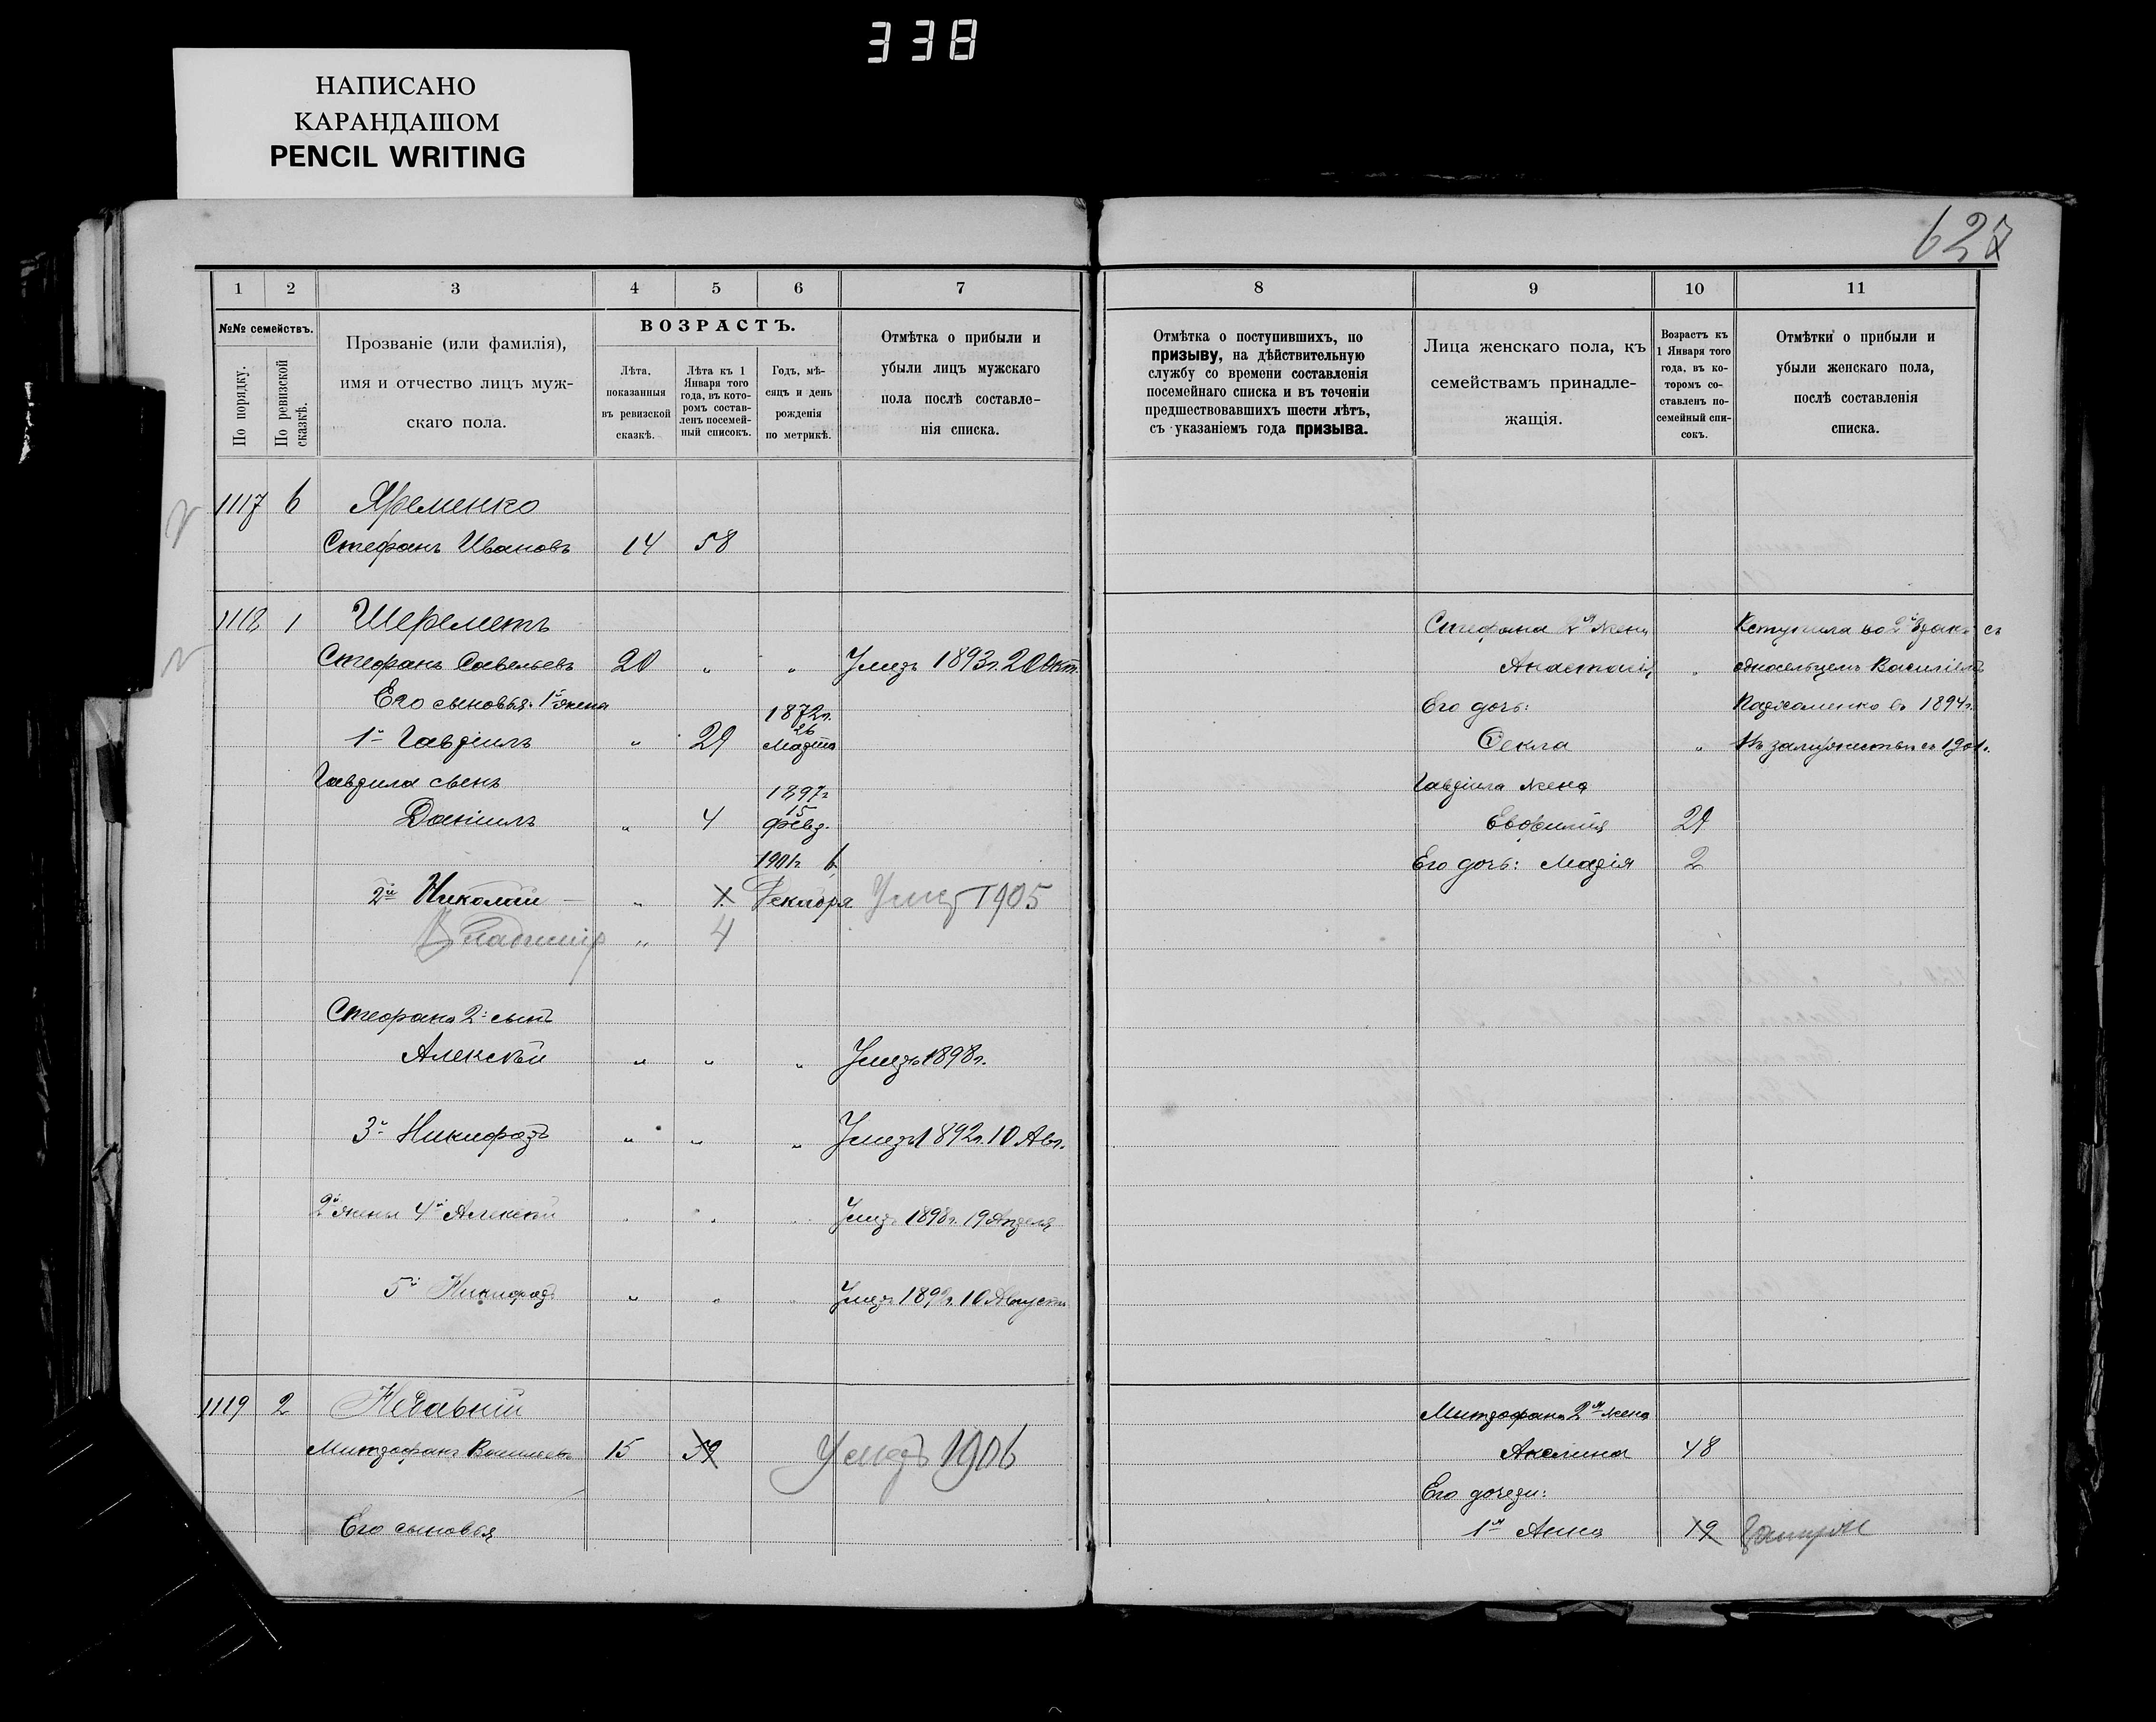 338
НАПИСАНО
КАРАНДАШОМ
PENCIL WRITING
627
1 2 3 4 5 6 7
№№ семействъ.
По порядку.
По ревизской сказкѣ.
Прозваніе (или фамилія),
имя и отчество лицъ муж-
скаго пола.
ВОЗРАСТЪ.
Лѣта,
показанныя
въ ревизской
сказкѣ.
Лѣта къ 1
Января того
года, въ кото-
ромъ состав-
ленъ посемей-
ный списокъ.
Годъ, мѣ-
сяцъ и день
рожденія
по метрикѣ.
Отмѣтка о прибыли и
убыли лицъ мужскаго
пола послѣ составле-
нія списка.
1117 6 Яременко
Стефанъ Ивановъ 14 58
1118 1 Шереметъ
Стефанъ Савельевъ 20 „ „ Умеръ 1893г. 20 Окт.
Его сыновья: 1й жены
1872г.
26
1й Гавріилъ „ 29 Марта
Гаврила сынъ
1897г
15
Даніилъ „ 4 Февр.
1901г 6
2й Николай „ 1 Декабря Умер 1905
Владимір „ 4
Стефана 2й сынъ
Алексѣй „ „ „ Умеръ 1898г.
3й Никифоръ „ „ „ Умеръ 1892г. 10 Авг.
2й жены 4й Алексѣй „ „ „ Умеръ 1898г. 19 Апреля
5й Никифоръ „ „ „ Умеръ 189 г. 10 Августа
1119 2
Митрофанъ 15 59 Умеръ 1906
Его сыновья
8 9 10 11
Отмѣтка о поступившихъ, по
призыву, на дѣйствительную
службу со времени составленія
посемейнаго списка и въ теченіи
предшествовавшихъ шести лѣтъ,
съ указаніемъ года призыва.
Лица женскаго пола, къ
семействамъ принадле-
жащія.
Возрастъ къ
1 Января того
года, въ ко-
торомъ со-
ставленъ по-
семейный спи-
сокъ.
Отмѣтки о прибыли и
убыли женскаго пола,
послѣ составленія
списка.
Стефана 2я жена Вступила во 2й бракъ съ
Анастасія „ односельцемъ Василіемъ
Его дочь: въ 1894г.
Ѳекла „ Въ замужествѣ съ 1901г.
Гавріила жена
Евфимія 29
Его дочь: Марія 2
Митрофана 2я жена
Акелина 48
Его дочери:
1я Анна 19